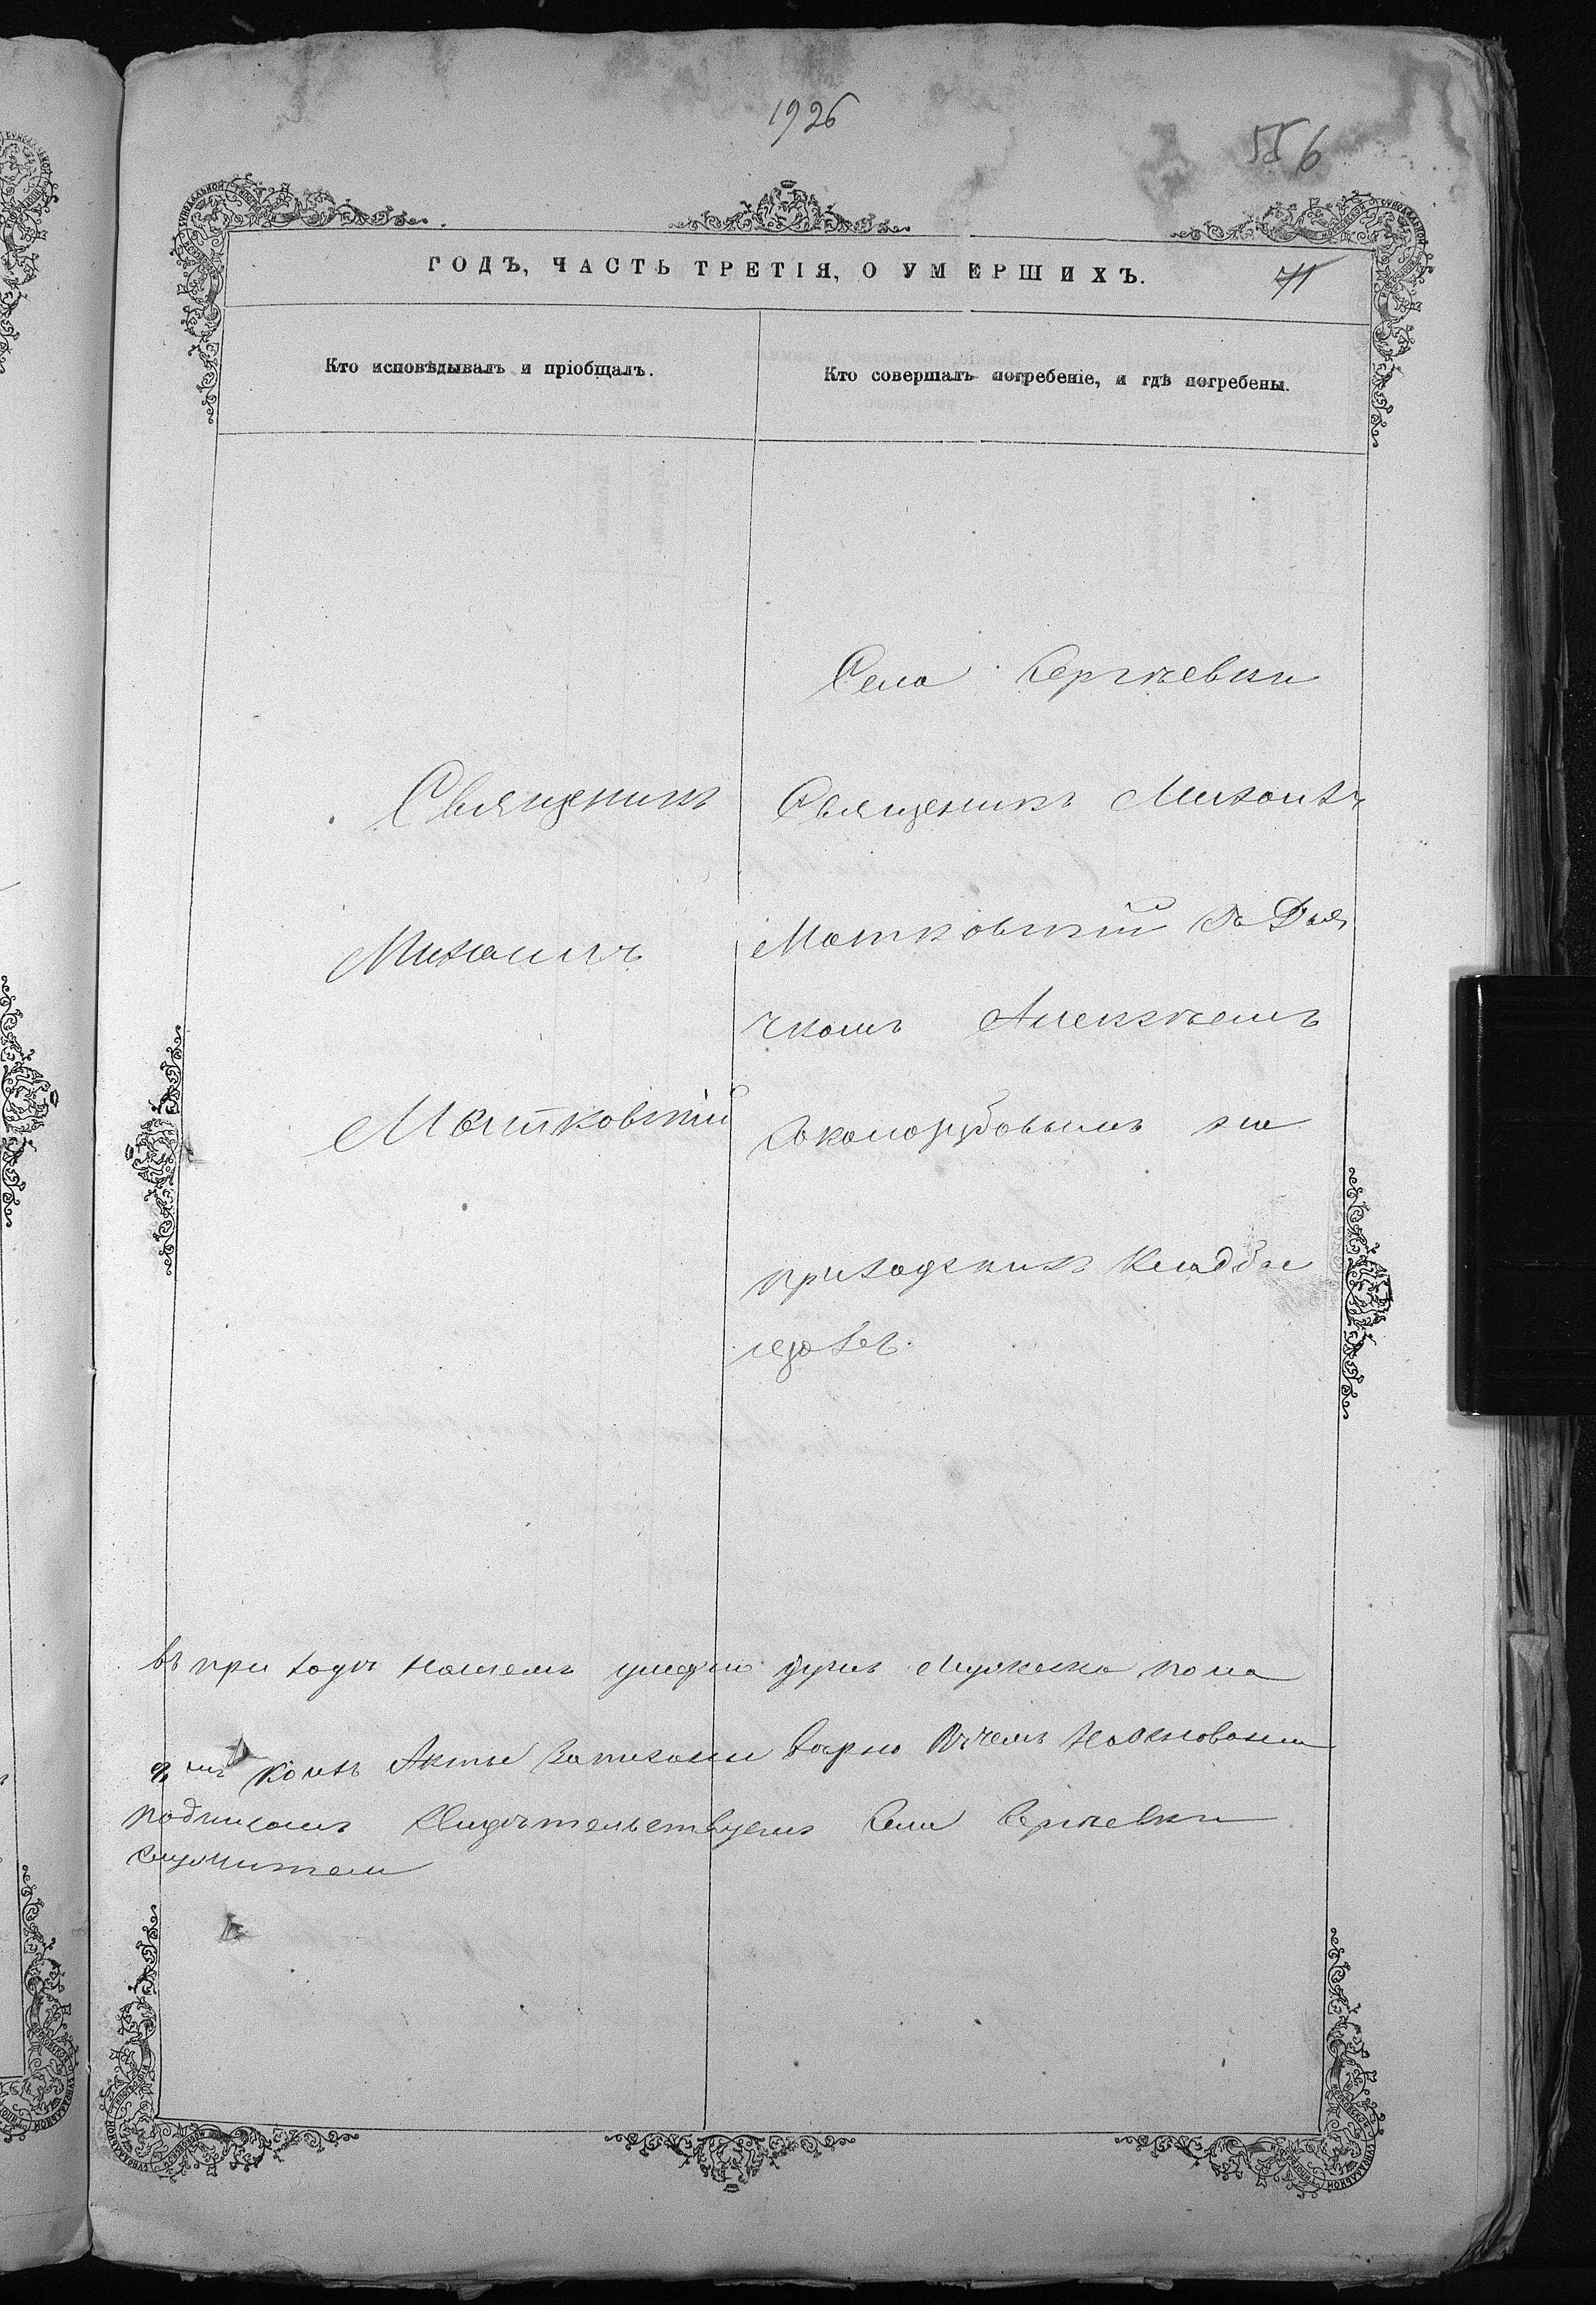 1926
556
ГОДЪ, ЧАСТЬ ТРЕТІЯ, О УМЕРШИХЪ.
71
Кто исповѣдывалъ и пріобщалъ.
Кто совершалъ погребеніе, и гдѣ погребены.
Священикъ
Михаилъ
Матковскій
Села Сергѣевки
Священикъ Михаилъ
Матковскій съ Дья
чкомъ Алексѣемъ
на
приходскихъ кладби
щахъ.
въ приходѣ нашемъ умерши душъ мужеска пола
коихъ Акты записаны вѣрно въ чемъ
подписомъ Свидѣтельствуемъ Села Сергѣевки
служители